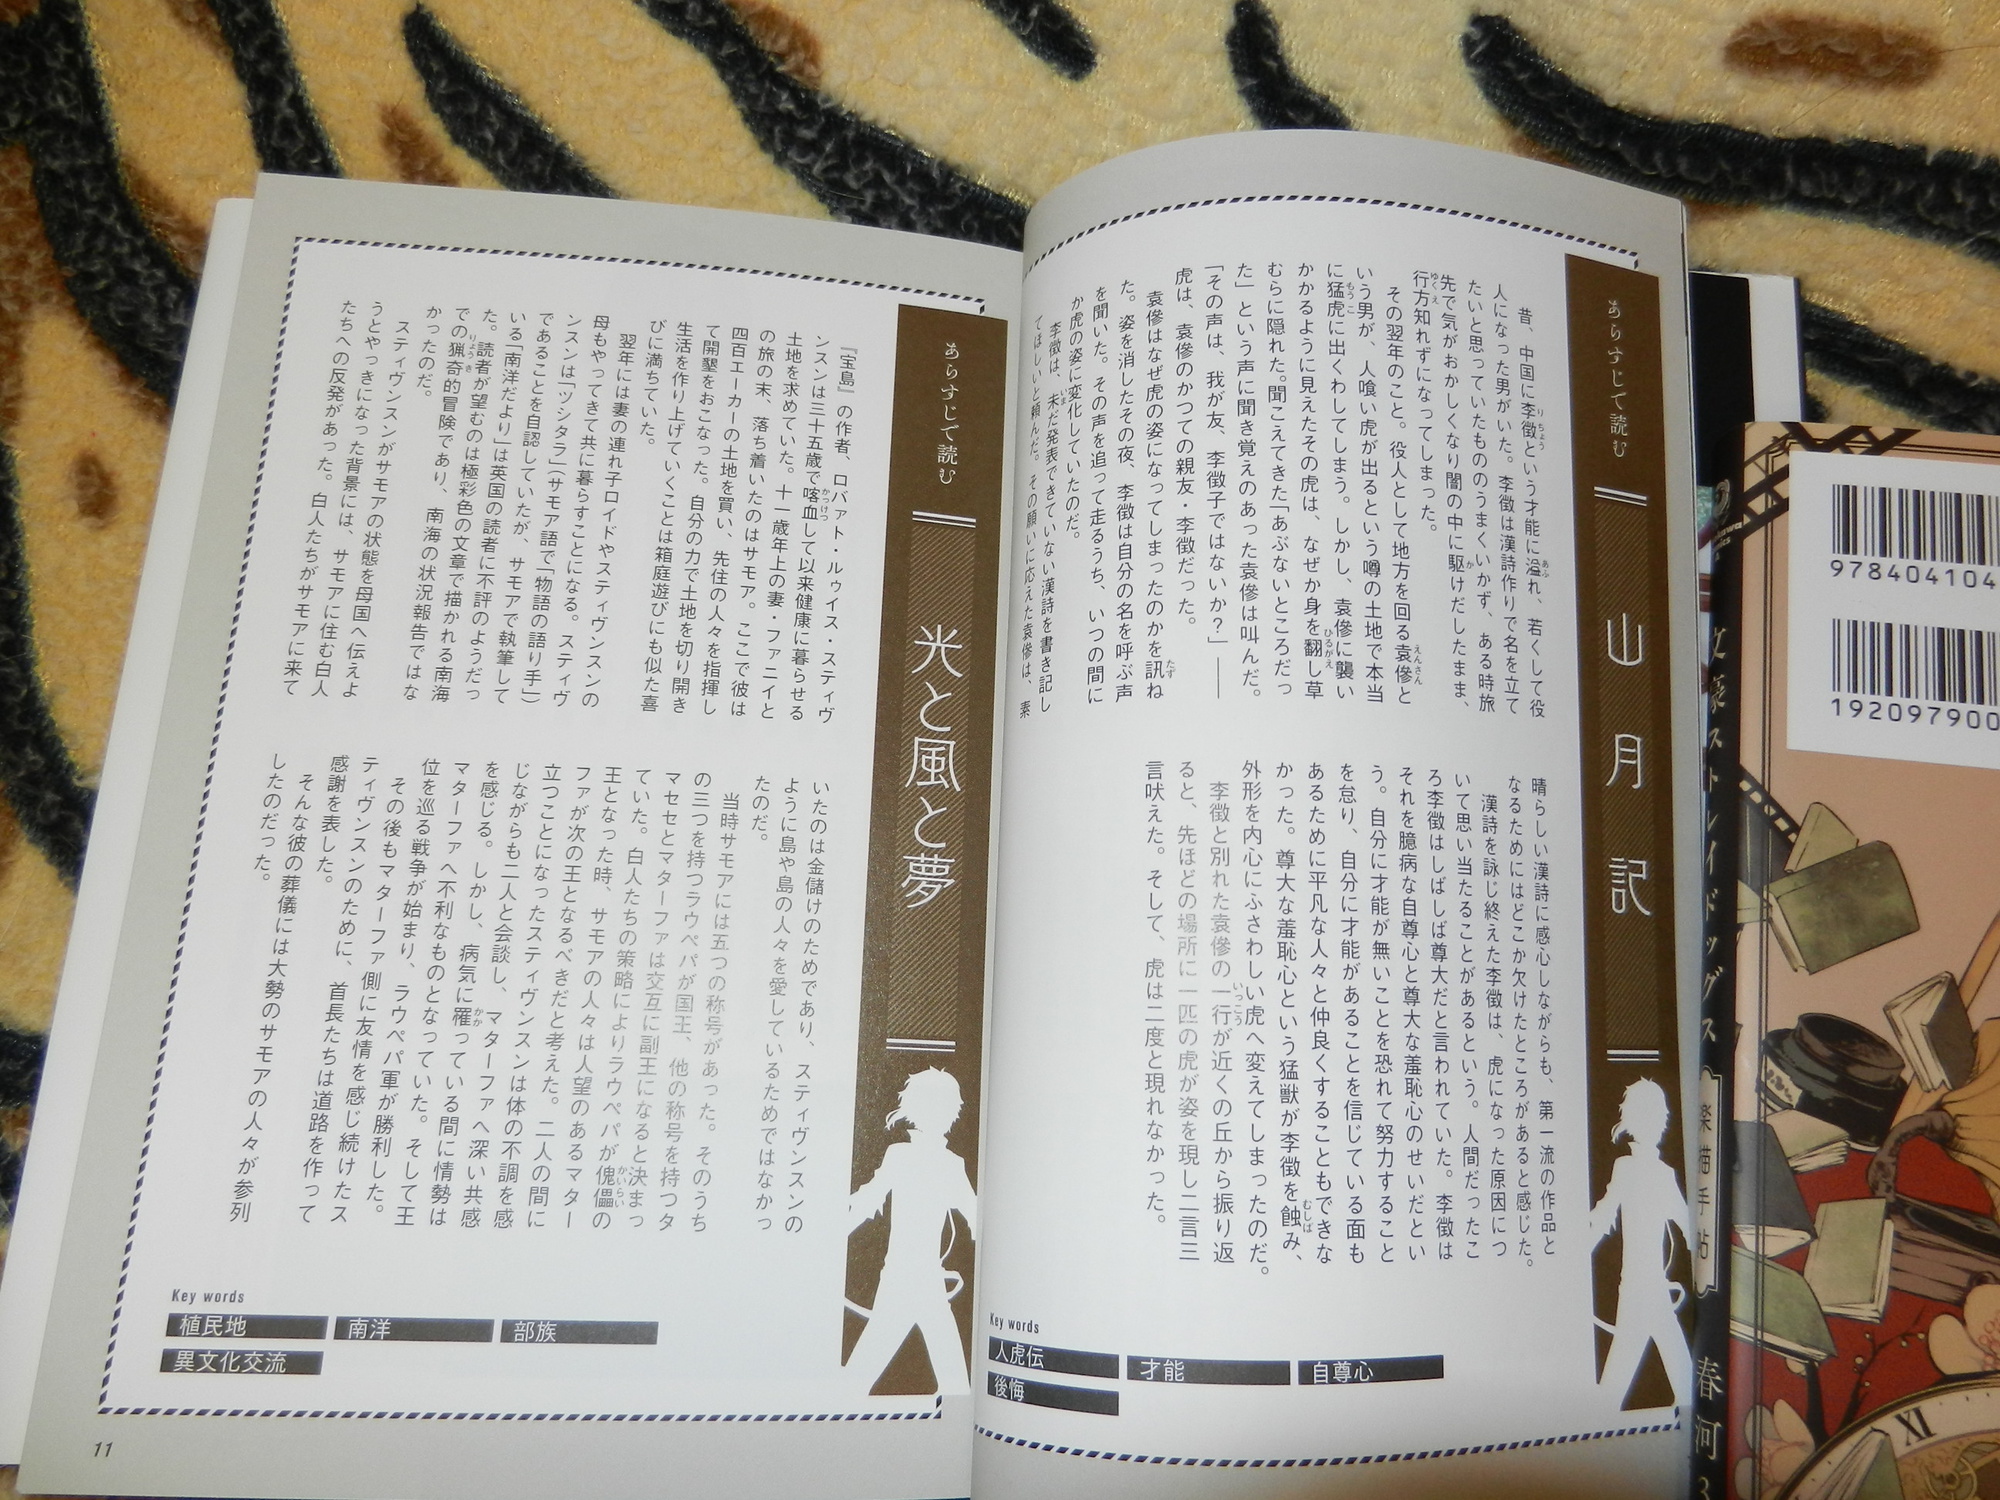 あらすじで読む
山月記
昔、中国に李徴という才能に溢れ、若くして役
人になった男がいた。李徴は漢詩作りで名を立て
たいと思っていたもののうまくいかず、ある時旅
先で気がおかしくなり闇の中に駆けだしたまま、
行方知れずになってしまった。
その翌年のこと。役人として地方を回る袁傪と
いう男が、人喰い虎が出るという噂の土地で本当
に猛虎に出くわしてしまう。しかし、袁傪に襲い
かかるように見えたその虎は、なぜか身を翻し草
むらに隠れた。聞こえてきた「あぶないところだっ
た」という声に聞き覚えのあった袁傪は叫んだ。
「その声は、我が友、李徴子ではないか？」――
虎は、袁傪のかつての親友・李徴だった。
袁傪はなぜ虎の姿になってしまったのかを訊ね
た。姿を消したその夜、李徴は自分の名を呼ぶ声
を聞いた。その声を追って走るうち、いつの間に
か虎の姿に変化していたのだ。
李徴は、未だ発表できていない漢詩を書き記し
てほしいと頼んだ。その願いに応えた袁傪は、素
晴らしい漢詩に感心しながらも、第一流の作品と
なるためにはどこか欠けたところがあると感じた。
漢詩を詠じ終えた李徴は、虎になった原因につ
いて思い当たることがあるという。人間だったこ
ろ李徴はしばしば尊大だと言われていた。李徴は
それを臆病な自尊心と尊大な羞恥心のせいだとい
う。自分に才能が無いことを恐れて努力すること
を怠り、自分に才能があることを信じている面も
あるために平凡な人々と仲良くすることもできな
かった。尊大な羞恥心という猛獣が李徴を蝕み、
外形を内心にふさわしい虎へ変えてしまったのだ。
李徴と別れた袁傪の一行が近くの丘から振り返
ると、先ほどの場所に一匹の虎が姿を現し二言三
言吠えた。そして、虎は二度と現れなかった。
Key words
人虎伝
才能
自尊心
後悔
あらすじで読む
光と風と夢
『宝島』の作者、ロバァト・ルゥイス・スティヴ
ンスンは三十五歳で喀血して以来健康に暮らせる
土地を求めていた。十一歳年上の妻・ファニイと
の旅の末、落ち着いたのはサモア。ここで彼は
四百エーカーの土地を買い、先住の人々を指揮し
て開墾をおこなった。自分の力で土地を切り開き
生活を作り上げていくことは箱庭遊びにも似た喜
びに満ちていた。
翌年には妻の連れ子ロイドやスティヴンスンの
母もやってきて共に暮らすことになる。スティヴ
ンスンは「ツシタラ」（サモア語で「物語の語り手」）
であることを自認していたが、サモアで執筆して
いる「南洋だより」は英国の読者に不評のようだっ
た。読者が望むのは極彩色の文章で描かれる南海
での猟奇的冒険であり、南海の状況報告ではな
かったのだ。
スティヴンスンがサモアの状態を母国へ伝えよ
うとやっきになった背景には、サモアに住む白人
たちへの反発があった。白人たちがサモアに来て
いたのは金儲けのためであり、スティヴンスンの
ように島や島の人々を愛しているためではなかっ
たのだ。
当時サモアには五つの称号があった。そのうち
の三つを持つラウペパが国王、他の称号を持つタ
マセセとマターファは交互に副王になると決まっ
ていた。白人たちの策略によりラウペパが傀儡の
王となった時、サモアの人々は人望のあるマター
ファが次の王となるべきだと考えた。二人の間に
立つことになったスティヴンスンは体の不調を感
じながらも二人と会談し、マターファへ深い共感
を感じる。しかし、病気に罹っている間に情勢は
マターファへ不利なものとなっていた。そして王
位を巡る戦争が始まり、ラウペパ軍が勝利した。
その後もマターファ側に友情を感じ続けたス
ティヴンスンのために、首長たちは道路を作って
感謝を表した。
そんな彼の葬儀には大勢のサモアの人々が参列
したのだった。
Key words
植民地
南洋
部族
異文化交流
11
978404104
192097900
文豪ストレイドッグス
春河3
XI